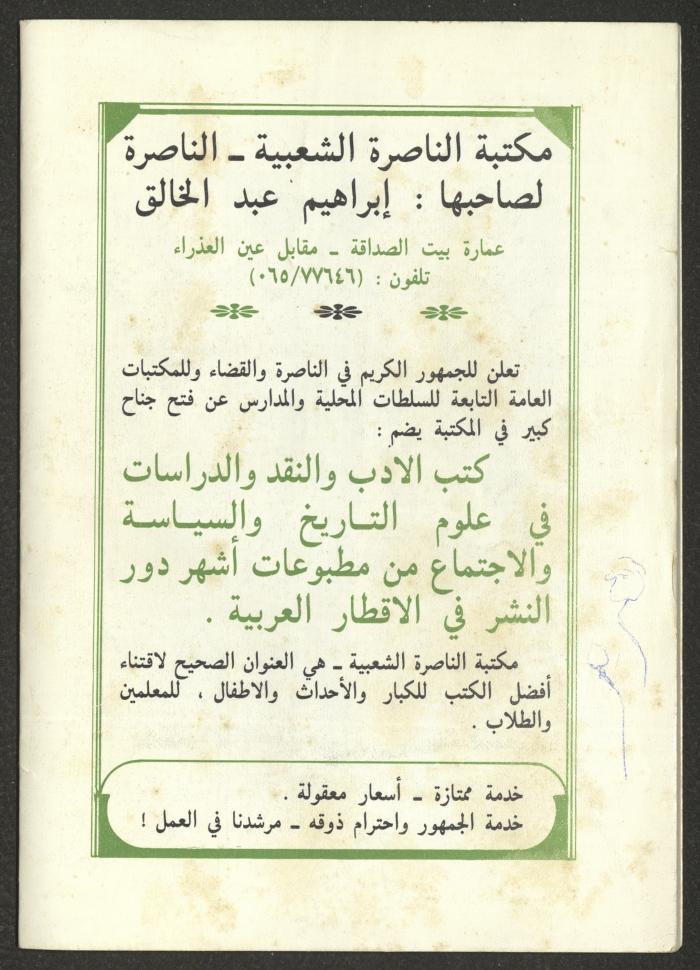 مكتبة الناصرة الشعبية ـ الناصرة
لصاحبها : إبراهيم عبد الخالق
عمارة بيت الصداقة ـ مقابل عين العذراء
تلفون : (٠٦٥/٧٧٦٤٦)
تعلن للجمهور الكريم في الناصرة والقضاء وللمكتبات
العامة التابعة للسلطات المحلية والمدارس عن فتح جناح
كبير في المكتبة يضم :
كتب الادب والنقد والدراسات
في علوم التـاريخ والسيـاسـة
والاجتماع من مطبوعات أشهر دور
النشر في الاقطار العربية .
مكتبة الناصرة الشعبية ـ هي العنوان الصحيح لاقتناء
أفضل الكتب للكبار والأحداث والاطفال ، للمعلمين
والطلاب .
خدمة ممتازة ـ أسعار معقولة .
خدمة الجمهور واحترام ذوقه ـ مرشدنا في العمل !